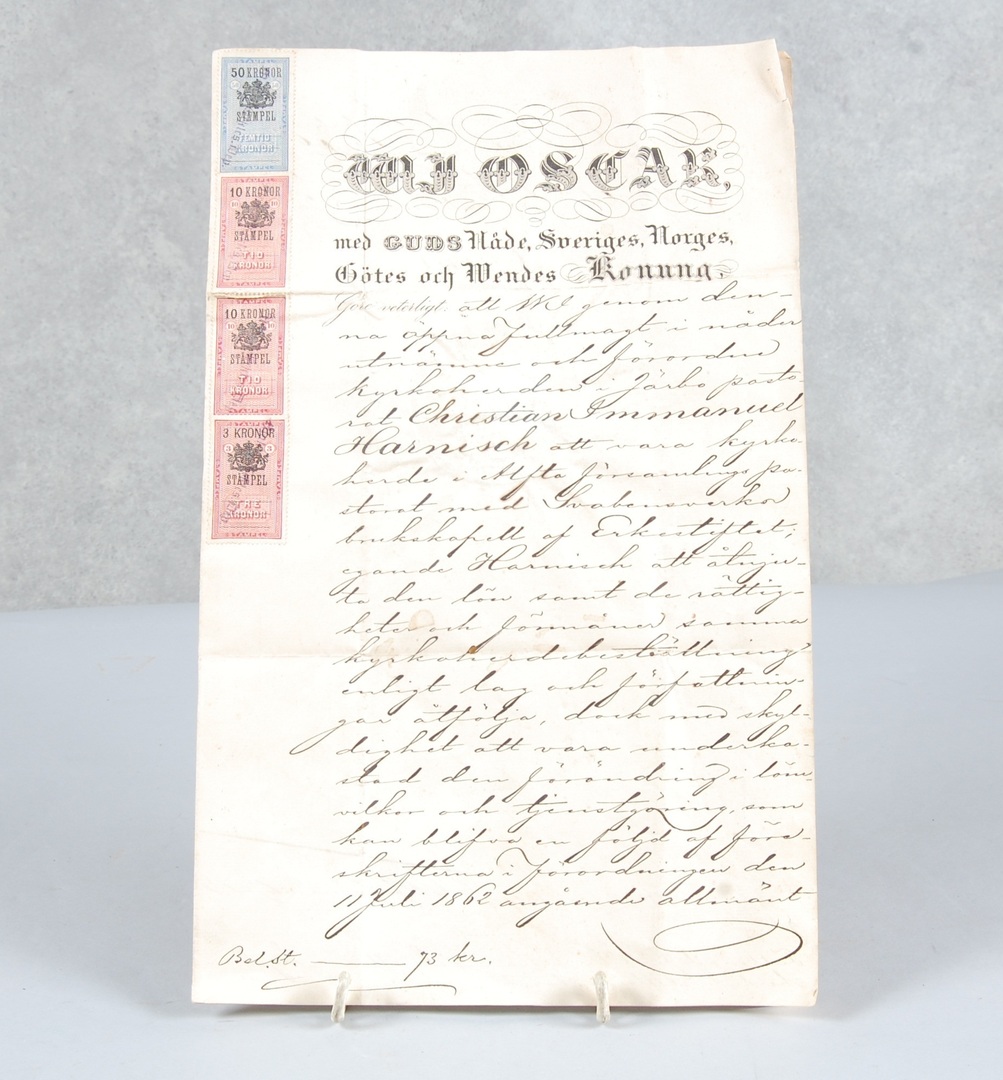 50 KRONOR
STÄMPEL
FEMTIO
KRONOR
STÄMPEL
10 KRONOR
10 10
STÄMPEL
TIO
KRONOR
10 KRONOR
10 10
STÄMPEL
TIO
KRONOR
3 KRONOR
3 3
STÄMPEL
TRE
KRONOR
STÄMPEL
WJ OSCAR,
med GUDS Nåde, Sveriges, Norges,
Götes och Wendes Konung,
Göre veterligt: att WJ genom den-
na öppna fullmagt i nåder
utnämne och förordne
kyrkoherden i Järbo pasto-
rat Christian Immanuel
Harnisch att vara kyrko-
herde i Alfta församlings pa-
storat med Svabensverks
brukskapell af Erkestiftet;
egande Harnisch att åtnju-
ta den lön samt de rättig-
heter och förmåner samma
kyrkoherdebeställning
enligt lag och författnin-
gar åtfölja, dock med skyl-
dighet att vara underka-
stad den förändring i löne-
vilkor och tjenstgöring, som
kan blifva en följd af före-
skrifterna i förordningen den
11 Juli 1862 angående allmänt
Bel. St. 73 kr.